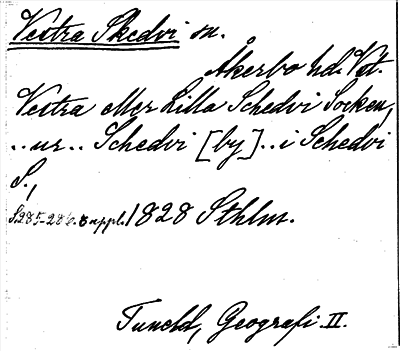 Vestra Skedvi sn.
Åkerbo hd. Vst.
Vestra eller Lilla Schedvi Socken,
..ur.. Schedvi [by]..i Schedvi
S.,
S.285-286. suppl. 1828 Sthlm.
Tuneld, Geografi II.